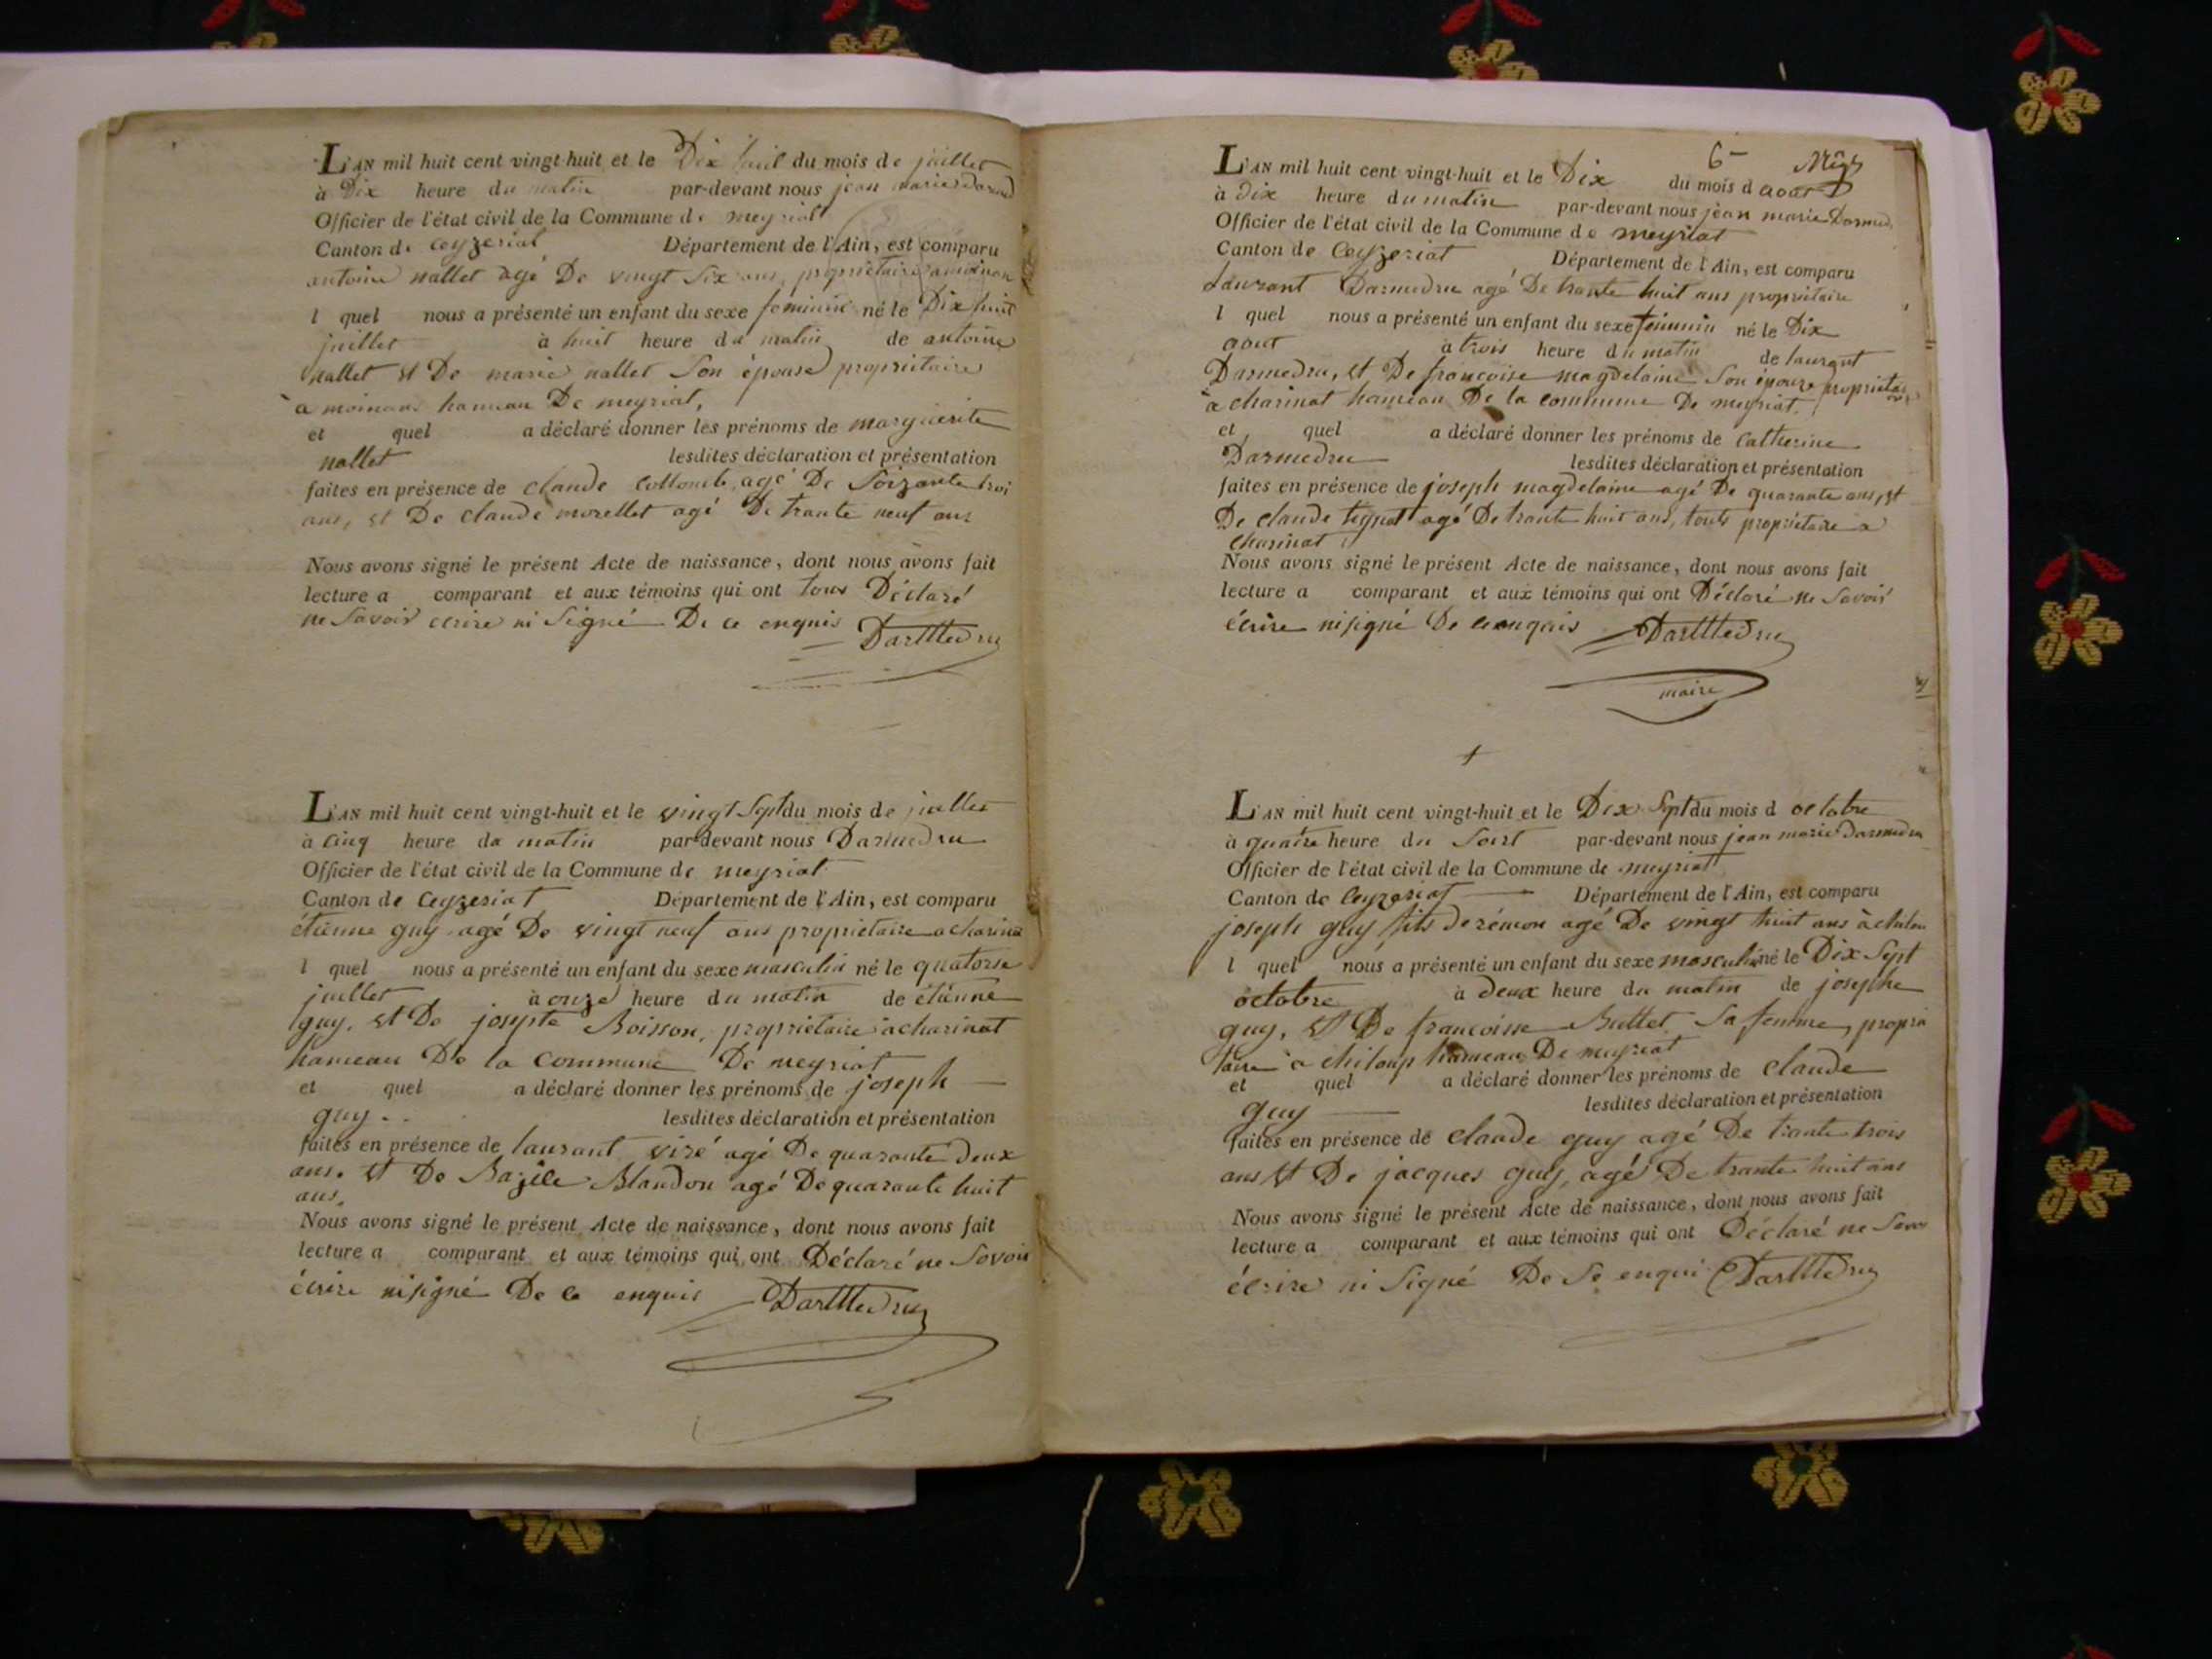 L'AN mil huit cent vingt-huit et le Dix huit du mois de juillet
à Dix heure du matin par-devant nous jean marie Darmed
Officier de l'état civil de la Commune de meyriat
Canton de Ceyzeriat Département de l'Ain, est comparu
antoine nallet agé De vingt Six ans, propriétaire a moinan
l quel nous a présenté un enfant du sexe feminin né le Dix huit
juillet à huit heure du matin de antoine
nallet et De marie nallet Son épouse propriétaire
a moinans hameau De meyriat,
et quel a déclaré donner les prénoms de marguerite
nallet lesdites déclaration et présentation
faites en présence de claude Collomb, agé De Soizante troi
ans, et De claude morellet agé De trante neuf ans
Nous avons signé le présent Acte de naissance, dont nous avons fait
lecture a comparant et aux témoins qui ont tous Déclaré
ne Savoir écrire ni Signé De ce enquis Darmedru
L'AN mil huit cent vingt-huit et le vingt Sept du mois de juillet
à Cinq heure du matin par-devant nous Darmedru
Officier de l'état civil de la Commune de meyriat
Canton de Ceyzeriat Département de l'Ain, est comparu
étienne guy agé De vingt neuf ans propriétaire a charina
l quel nous a présenté un enfant du sexe masculin né le quatorse
juillet à onze heure du matin de étienne
guy, et De josepte Boisson, propriétaire a charinat
hameau De la commune De meyriat
et quel a déclaré donner les prénoms de joseph
guy lesdites déclaration et présentation
faites en présence de laurant viré agé De quarante deux
ans. et De Bazile Blandon agé De quarante huit
ans,
Nous avons signé le présent Acte de naissance, dont nous avons fait
lecture a comparant et aux témoins qui ont Déclaré ne Savoir
écrire ni signé De ce enquis Darmedru
6
L'AN mil huit cent vingt-huit et le Dix du mois d aout
à dix heure du matin par-devant nous jean marie Darmed
Officier de l'état civil de la Commune de meyriat
Canton de Ceyzeriat Département de l'Ain, est comparu
Laurant Darmedru agé De trante huit ans propriétaire
l quel nous a présenté un enfant du sexe féminin né le Dix
aout à trois heure du matin de laurant
Darmedru, et De françoise magdelaine Son épouze propriétai
à charinat hameau De la commune De meyriat,
et quel a déclaré donner les prénoms de Catherine
Darmedru lesdites déclaration et présentation
faites en présence de joseph magdelaine agé De quarante ans, et
De claude agé De trante huit ans, touts propriétaire a
charinat
Nous avons signé le présent Acte de naissance, dont nous avons fait
lecture a comparant et aux témoins qui ont Déclaré ne Savoir
écrire ni signé De ce enquis Darmedru
maire
L'AN mil huit cent vingt-huit et le Dix Sept du mois d octobre
à quatre heure du Soirt par-devant nous jean marie Darmedru
Officier de l'état civil de la Commune de meyriat
Canton de Ceyzeriat Département de l'Ain, est comparu
joseph guy fils de rémon agé De vingt huit ans à chilou
l quel nous a présenté un enfant du sexe masculin né le Dix Sept
octobre à deux heure du matin de josephe
guy, et De francoisse Buttet Sa femme, proprié
taire a chiloup hameau De meyriat
et quel a déclaré donner les prénoms de claude
guy lesdites déclaration et présentation
faites en présence de claude guy agé De trante trois
ans et De jacques guy, agé De trante huit ans
Nous avons signé le présent Acte de naissance, dont nous avons fait
lecture a comparant et aux témoins qui ont Déclaré ne Savoi
écrire ni Signé De Se enqui Darmedru